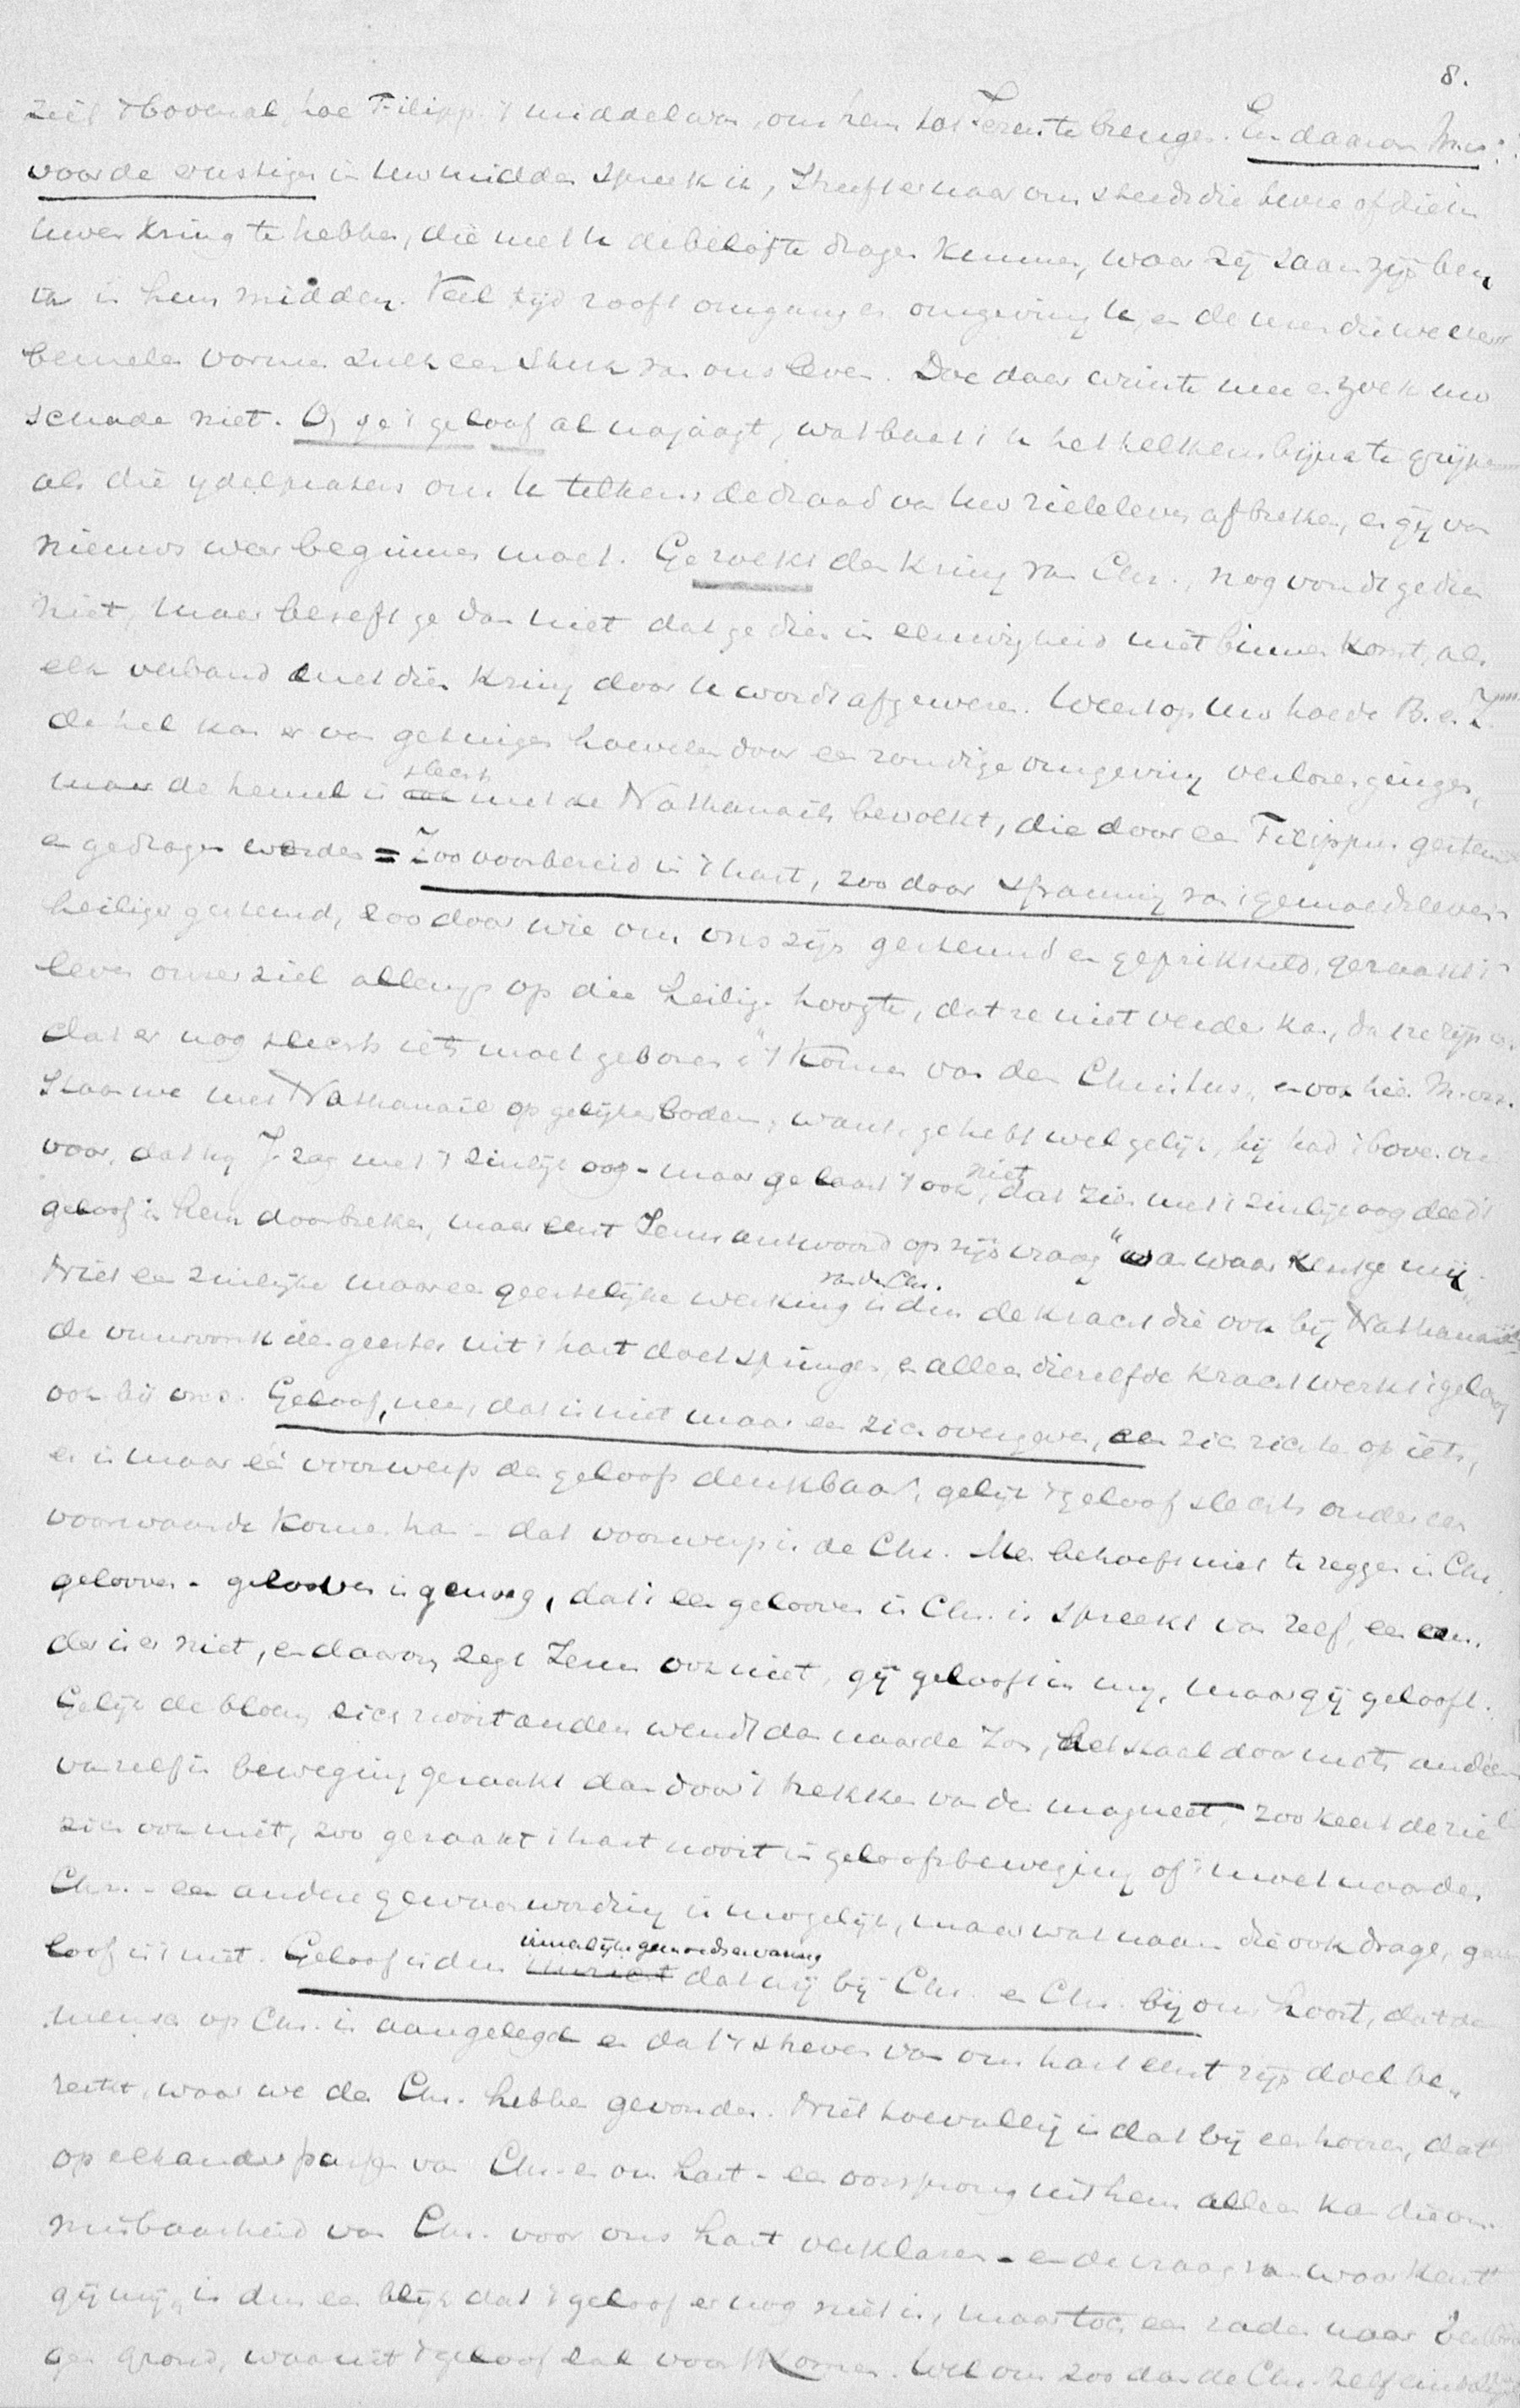 8.
ziet 't bovenal, hoe Filipp. 't middel was, om hem tot Jezus te brengen. En daarom M.
voor de ernstigen in Uw midden spreek ik, streeft ernaar om steeds die lieve of die in
Uwen kring te hebben, die met U de belofte dragen kunnen, waar zij saam zijn ben
ik in hun midden. Veel tijd rooft omgang en omgeving U, en de uren die we er
vormen zulk een stuk van ons leven. Doe daar winste mee en zoek uw
schade niet. O, ge 't geloof al najaagt, wat baat 't U het telkens bijna te grijpen
als die ydelpraters om U telkens de draad van Uw zieleleven afbreken, en gij van
nieuws weer beginnen moet. Ge zoekt den kring van Chr., nog vondt ge dien
niet, maar beseft ge dan niet dat ge dien in eeuwigheid niet binnen komt, als
elk verband met dien kring door U wordt afgewezen. Weest op Uw hoede B. e. Z.
de hel kan er van getuigen hoevelen door een zondige omgeving verloren gingen,
maar de hemel is slechts met de Nathanaëls bevolkt, die door een Filippus gesteund
en gedragen werden = Zoo voorbereid in 't hart, zoo door spanning van 't gemoedsleven
heilige gestemd, zoo door wie om ons zijn gesteund en geprikkeld, geraakt 't
leven onzer ziel allengs op die heilige hoogte, dat ze niet verder kan, dat ze rijp is.
dat er nog slechts iets moet geboren "'t Komen van den Christus, en ook hier M.
staan we met Nathanaël op gelijken bodem, want, ge hebt wel gelijk, hij had 't boven ons
voor, dat hij J. zag met 't zinlijk oog - maar ge leest 't ook, niet dat zien met 't zinlijk oog deed 't
geloof in hem doorbreken, maar eerst Jezus antwoord op zijn vraag "van waar kent ge mij"
Niet een zinlijke maar een geestelijke werking van de Chr. is dus de kracht die ook bij Nathanaël
de vuurvonk des geestes uit 't hart doet springen, en alleen diezelfde kracht werkt 't geloof
ook bij ons. Geloof, nee, dat is niet maar een zich overgeven, een zich richten op iets,
er is maar éé voorwerp des geloofs denkbaar, gelijk 't geloof slechts onder een
voorwaarde komen kan - dat voorwerp is de Chr. Men behoeft niet te zeggen in Chr.
gelooven - gelooven is genoeg, dat 't een gelooven in Chr. is spreekt van zelf, een an.
der is er niet, en daarom zegt Jezus ook niet, gij gelooft in mij, maar gij gelooft.
Gelijk de bloem zich nooit anders wendt dan naar de Zon, het staal door niets anders
vanzelf in beweging geraakt dan door 't trekken van den magneet, zoo keert de ziel
zich ook niet, zoo geraakt 't hart nooit in geloofsbeweging of 't moet naar den
Chr. - een andere gewaarwording is mogelijk, maar wat naam die ook drage, ge
loof is 't niet. Geloof is dus innerlijke gemoedservaring dat wij bij Chr. en Chr. bij ons hoort, dat de
mensch op Chr. is aangelegd en dat 't streven van ons hart eerst zijn doel be„
reikt, waar we den Chr. hebben gevonden. Niet toevallig is dat bij een hooren, dat
op elkander passen van Chr. en ons hart - een oorsprong uit hem alleen kan die on„
misbaarheid van Chr. voor ons hart verklaren - en de vraag van waar kent
gij mij" is dus een blijk dat 't geloof er nog niet is, maar toch een raden naar
gen grond, waaruit 't geloof zal voort komen. Wel om zoo dan de Chr. zelf